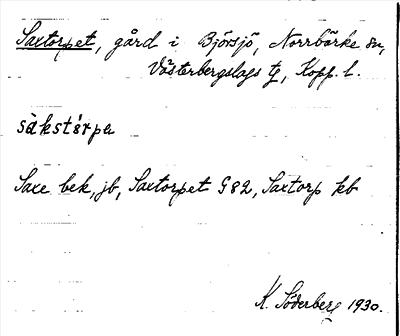 Saxtorpet, gård i Björsjö, Norrbärke sn,
Västerbergslags tg, Kopp. l.
sàkstórpa
Saxe bek, jb, Saxtorpet G82, Saxtorp kb
K. Söderberg 1930.